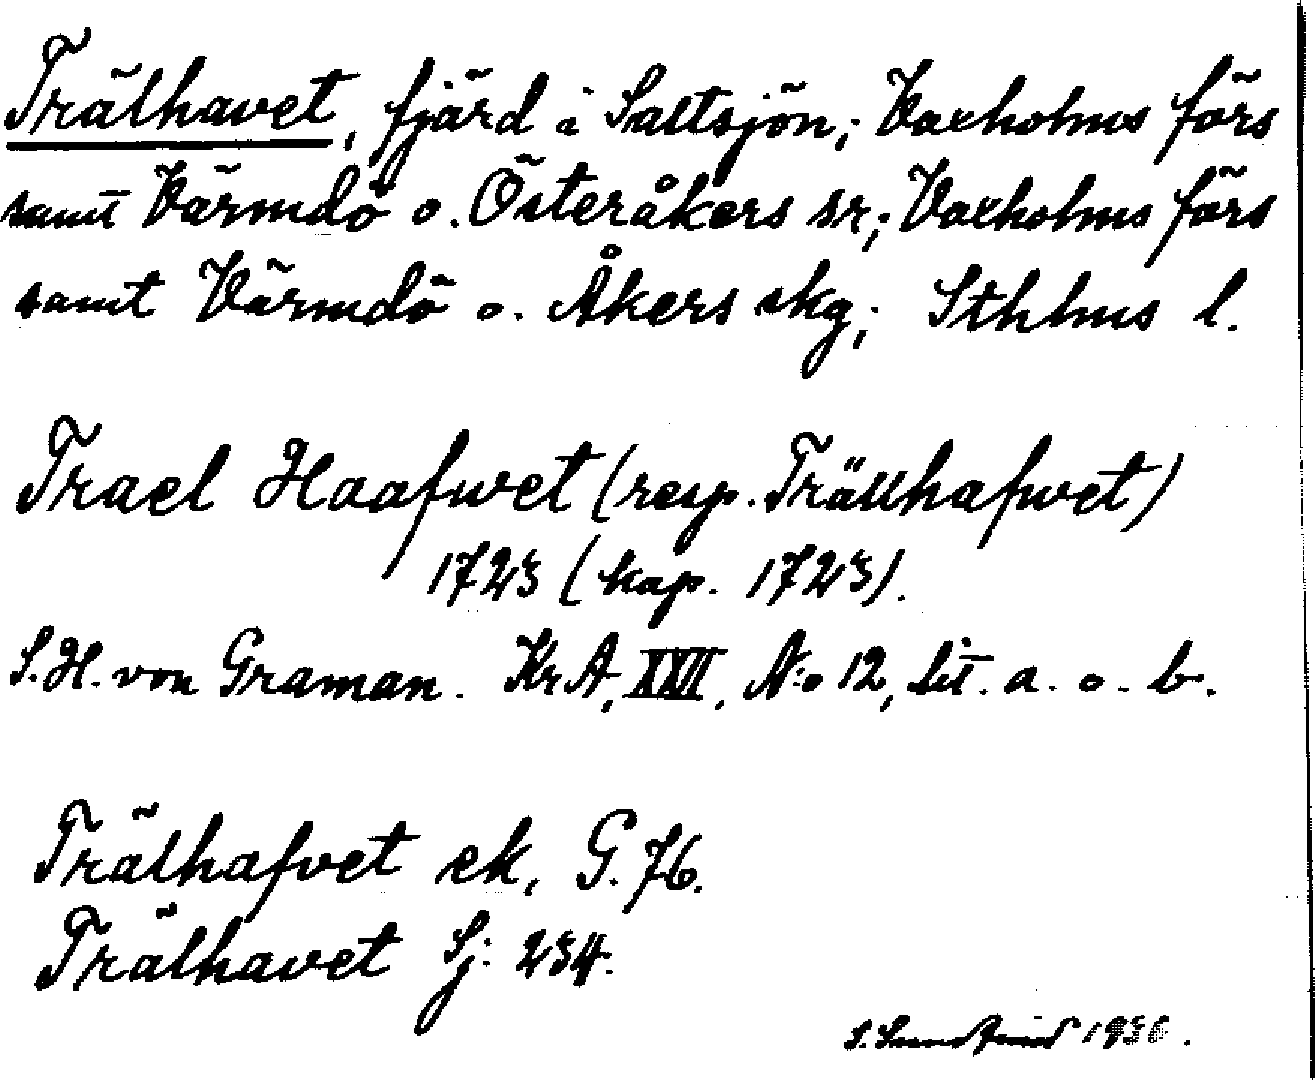 Trälhavet, fjärd i Saltsjön; Vaxholms förs
samt Värmdö o. Österåkers sr; Vaxholms förs
samt Värmdö o. Åkers skg; Sthlms l.
Trael Haafwet (resp. Trällhafwet)
1723 (kap. 1723).
S.H. von Graman. KrA, XXVI, N:o 12, Lit. a. o. b.
Trälhafvet ek, G. 76.
Trälhavet Sj: 234.
S. 1936.